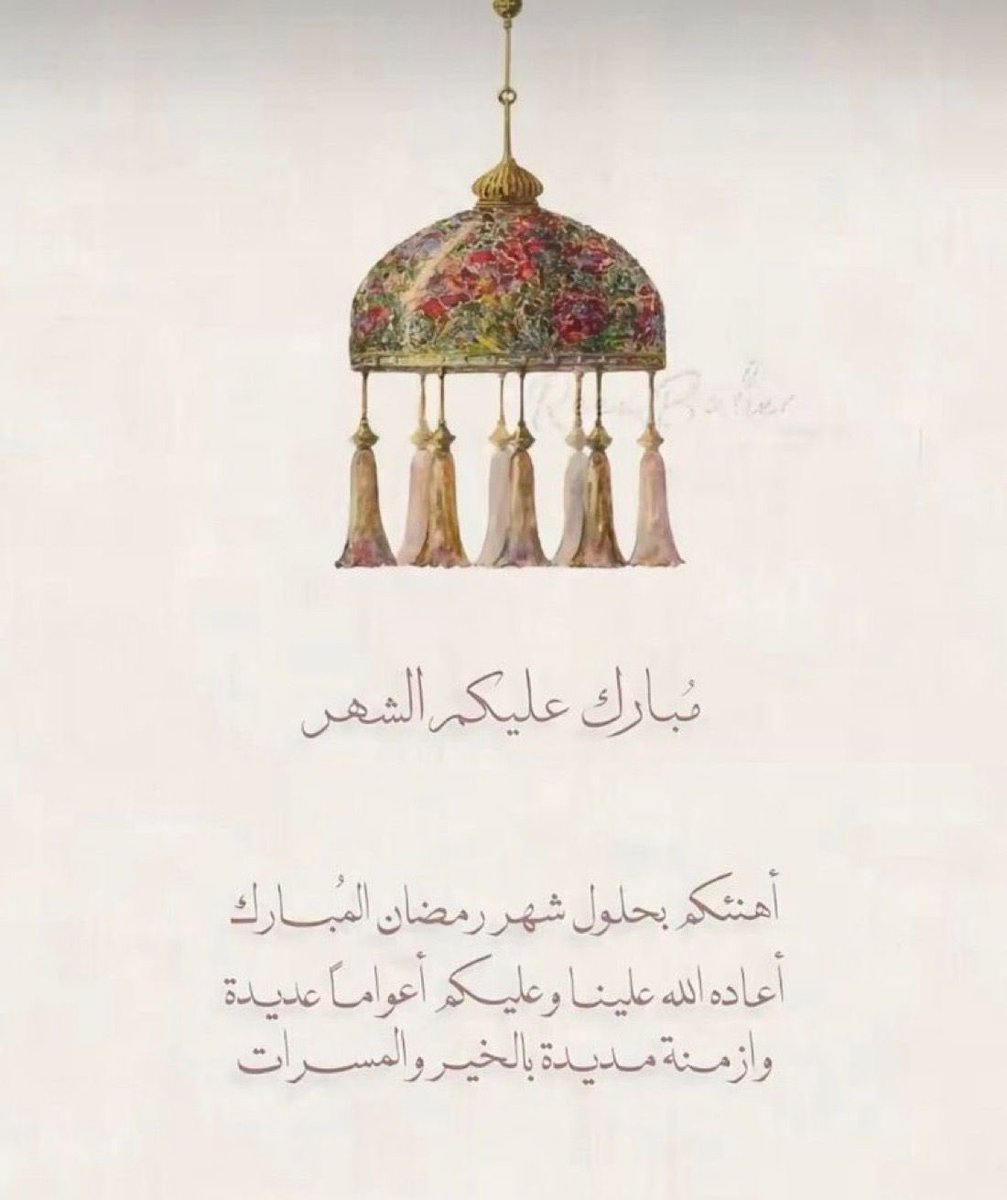 مُبارك عليكم الشهر
أهنئكم بحلول شهر رمضان المُبارك
أعاده الله علينا وعليكم أعواماً عديدة
وازمنة مديدة بالخير والمسرات